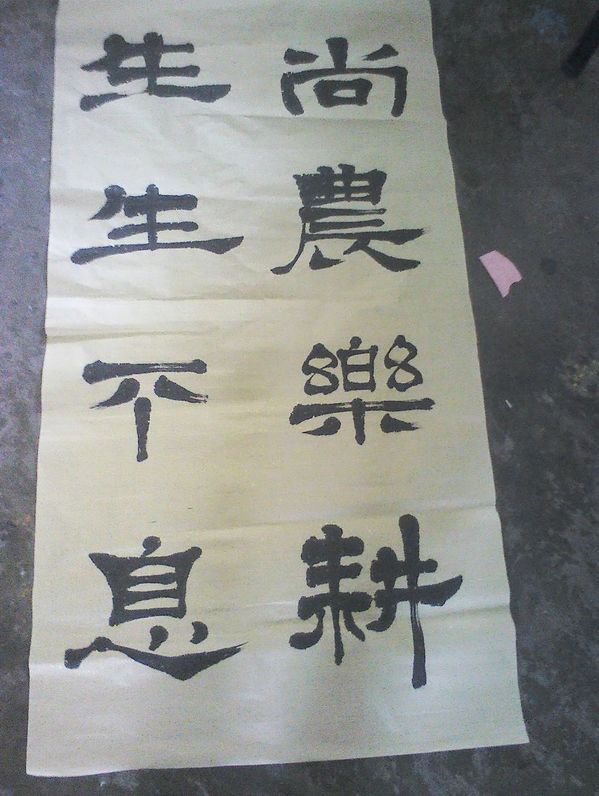 尚農樂耕
生生不息